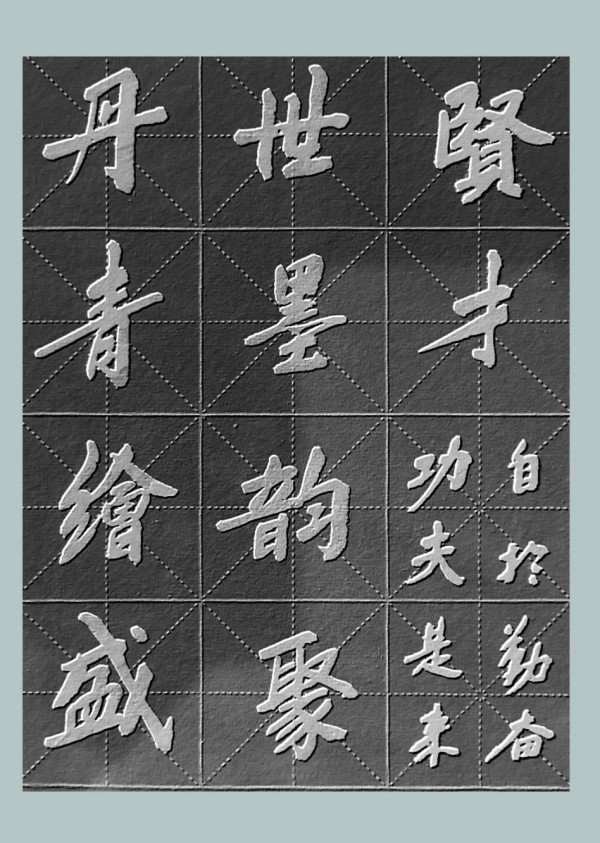 丹青繪盛
世墨韵聚
賢才
功夫是来
自於勤奋